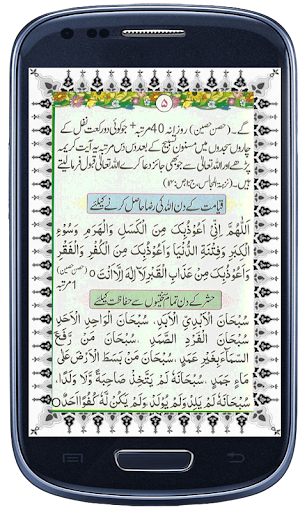 ۵
گے۔ (حصن حصین) روزانہ 40 مرتبہ + جو کوئی دو رکعت نفل کے
چاروں سجدوں میں مسنون تسبیح کے بعد دس دس مرتبہ یہ آیت کریمہ
پڑھے اور اللہ تعالیٰ سے جو بھی جائز دعا کرے اللہ تعالیٰ قبول فرما لیتے
ہیں۔
قیامت کے دن اللہ کی رضا حاصل کرنے کیلئے
اَللّٰهُمَّ اِنِّیْ اَعُوْذُبِكَ مِنَ الْكَسَلِ وَالْهَرَمِ وَسُوْءِ
الْكِبَرِ وَفِتْنَةِ الدُّنْيَا وَاَعُوْذُبِكَ مِنَ الْكُفْرِ وَالْفَقْرِ
وَاَعُوْذُبِكَ مِنْ عَذَابِ الْقَبْرِ لَا اِلٰهَ اِلَّا اَنْتَ (حصن حصین) 1 مرتبہ
حشر کے دن تمام سختیوں سے حفاظت کیلئے
سُبْحَانَ الْاَبَدِيِّ الْاَبَدِ، سُبْحَانَ الْوَاحِدِ الْاَحَدِ
سُبْحَانَ الْفَرْدِ الصَّمَدِ، سُبْحَانَ مَنْ رَفَعَ
السَّمَآءَ بِغَيْرِ عَمَدٍ، سُبْحَانَ مَنْ بَسَطَ الْاَرْضَ عَلٰى
مَآءٍ جَمَدٍ، سُبْحَانَهٗ لَمْ يَتَّخِذْ صَاحِبَةً وَّلَا وَلَدًا،
سُبْحَانَهٗ لَمْ يَلِدْ وَلَمْ يُوْلَدْ وَلَمْ يَكُنْ لَّهٗ كُفُوًا اَحَدٌ